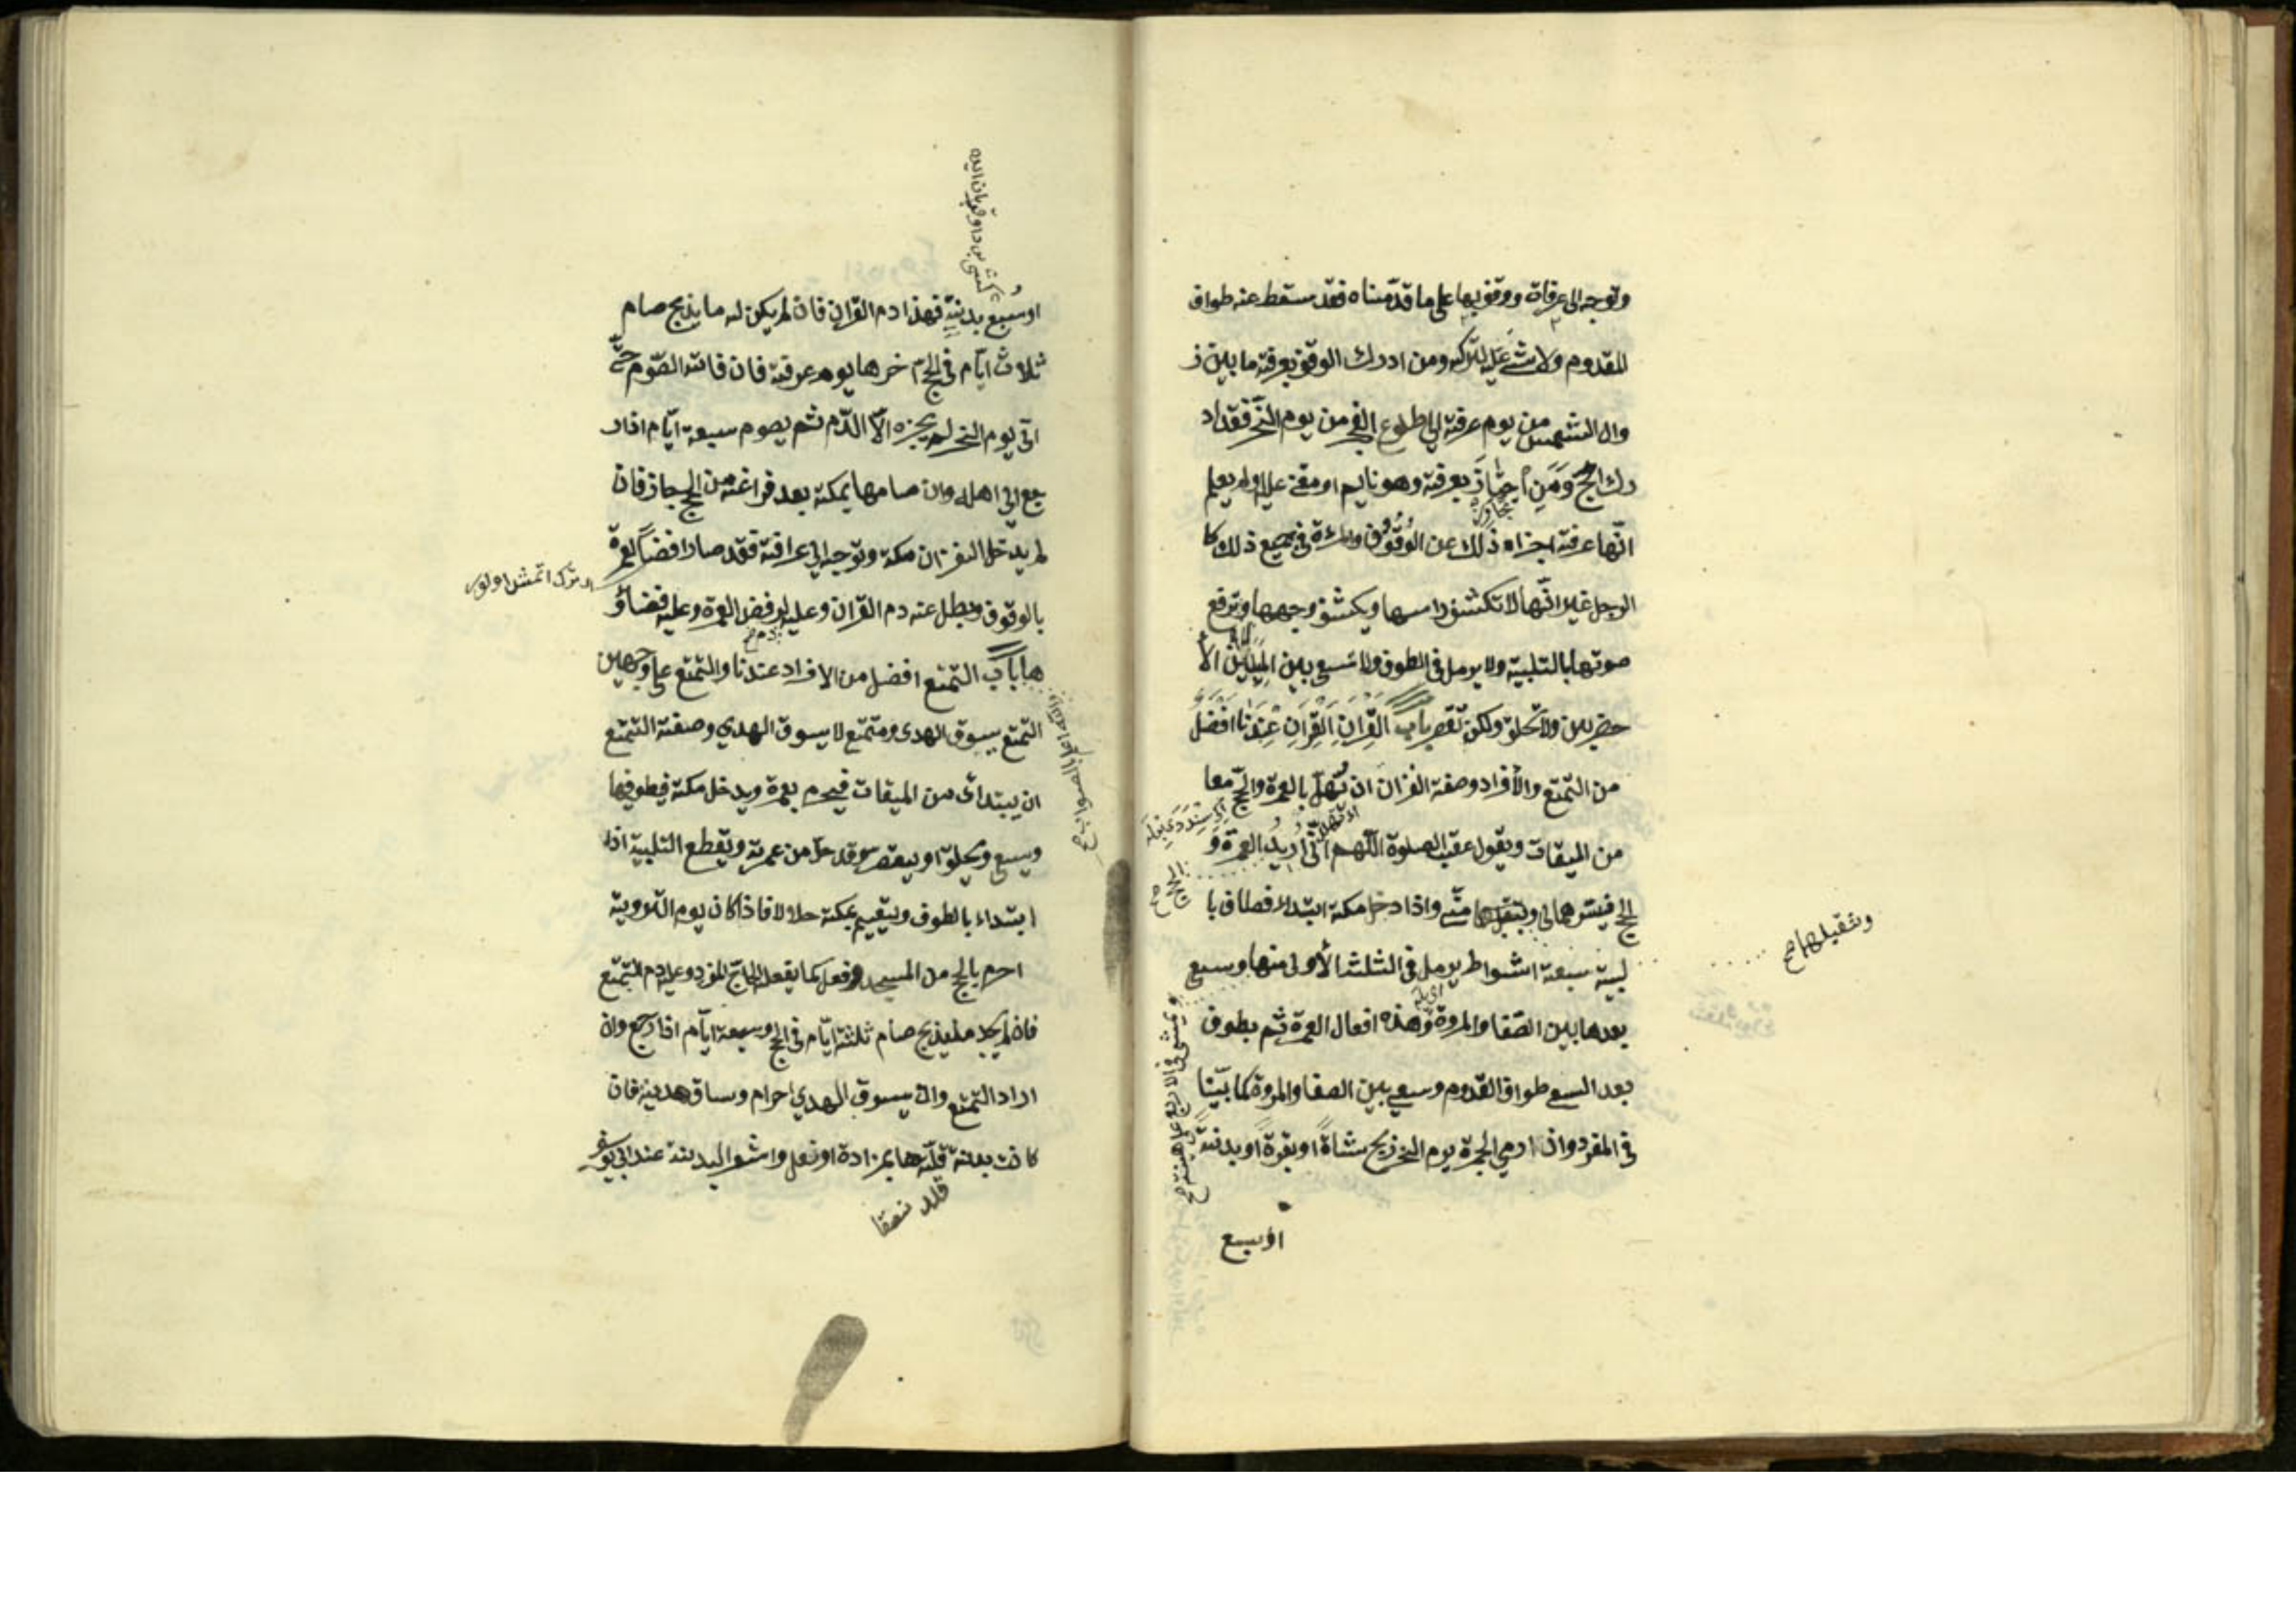 وتوجه الى عرفات ووقف بها على ما قدّمناه فقد سقط عنه طواف
القدوم ولا شئ عليه لتركه ومن ادرك الوقوف بعرفة ما بين ز
وال الشمس من يوم عرفة الى طلوع الفجر من يوم النّحر فقد اد
رك الحجّ وَمَنِ اجتازَ بعرفة وهو نايم او مغمى عليه او لم يعلم
تجاوز
انّها عرفة اجزاه ذلك عن الوُقُوُف والمرءة فى جميع ذلك كا
الرجل غير انّها لا تكشف راسها ويكشف وجهها وترفع
صوتها بالتلبية ولا يرمل فى الطوف ولا تسعى بين المِيلَيْن الأ
خضرين ولا تحلق ولكن تقصر باب القِرَانِ القِرَانِ عِنْدَنَا افْضَلُ
من التّمتع والأفراد وصفة القران ان يُهلّ بالعمرة والحجّ معا
من الميقات ويقول عقيب الصلوة اللّهم انّى اُرِيدُ العمرة وَ
الحج فيسرهما لى وتقبلهما منّى واذا دخل مكة ابتداء فطاف با
الحج صح
وتقبلهما صح
لبيت سبعة اشواط يرمل فى الثلث الأولى منها وسعى
ويمشى فى الاربع على هينته صح
بعدها بين الصّفا والمروة وهذه افعال العمرة ثم بطوف
بعد السعى طواف القدوم وسعى بين الصفا والمروة كما بيّنّا
فى المفرد واذا رمى الجمرة يوم النحر ذبح شاةً او بقرةً او بدنةً
او سبع
او سُبع بدنةٍ فهذا دم القران فان لم يكن له ما يذبح صام
ثلاث ايّام فى الحجّ اخرها يوم عرفة فان فاته الصّوم حتّى
اتى يوم النحر لم يجزه الاّ الدّم ثم يصوم سبعة ايّام اذا ر
جع الى اهله وان صامها بمكة بعد فراغه من الحج جاز فان
لم يدخل القران مكة وتوجه الى عرافة فقد صار رافضاً لعمرة
بالوقوف وبطل عنه دم القران وعليه لرفض العمرة وعليه قضاؤ
دم صح
ها باب التّمتع افضل من الافراد عندنا والتّمتع على وجهين
التّمتع بسوق الهدى ومتمتع لا يسوق الهدي وصفة التّمتع
ان يبتدائ من الميقات فيحرم بعمرة ويدخل مكة فيطوف لها
ويسعى ويحلق او يقصر وقد حلّ من عمرته ويقطع التلبية اذا
ابتداء بالطوف ويقيم بمكة حلالا فاذا كان يوم التّروية
احرم بالحج من المسجد وفعل كما يفعله الحاجّ المفرد وعليه دم التّمتع
فان لم يجد ما يذبح صام ثلثة ايّام فى الحج وسبعة ايّام اذا رجع وان
اراد التّمتع وان يسوق الهدي احرام وساق هديه فان
كانت بدنة قلّدها بمزادة او نعل واشعر البدنة عند ابى يوسف